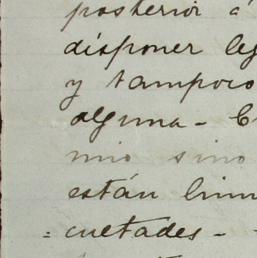 posterior á
disponer le
y tampoco
alguna - E
mio sino
están lim
= cultades -